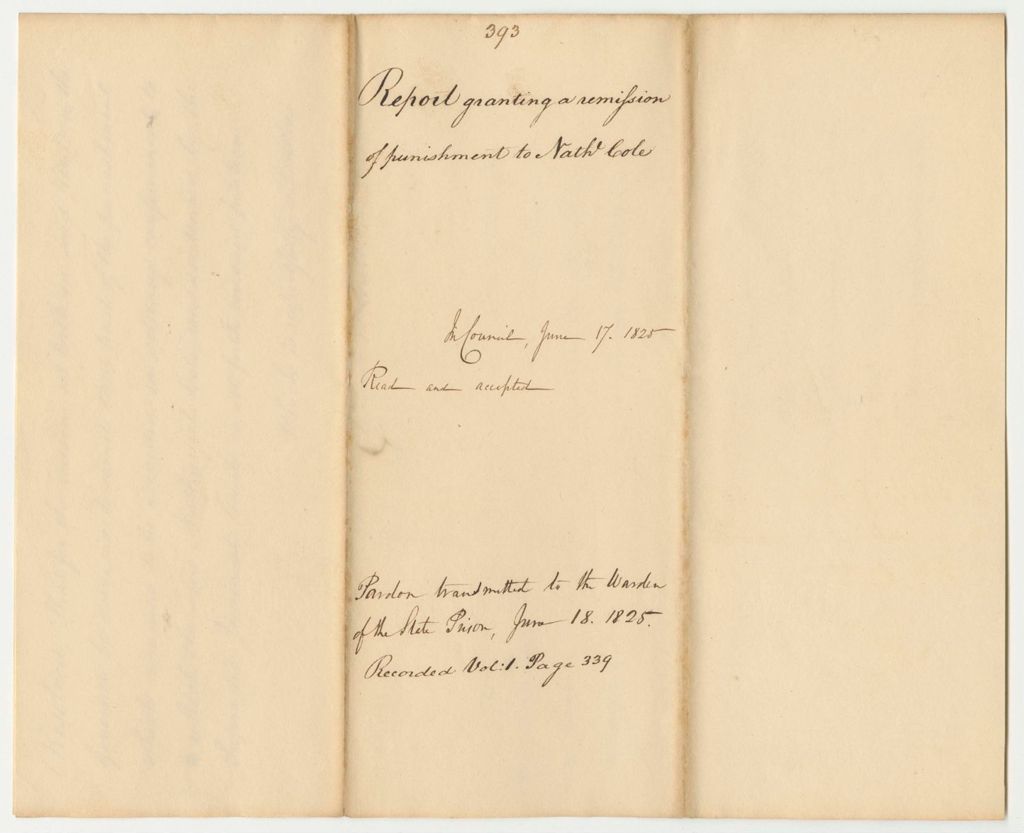 393
Report granting a remission
of punishment to Nathl Cole
In Council, June 17. 1825
Read and accepted
Pardon transmitted to the Warden
of the State Prison, June 18. 1825.
Recorded Vol: 1. Page 339